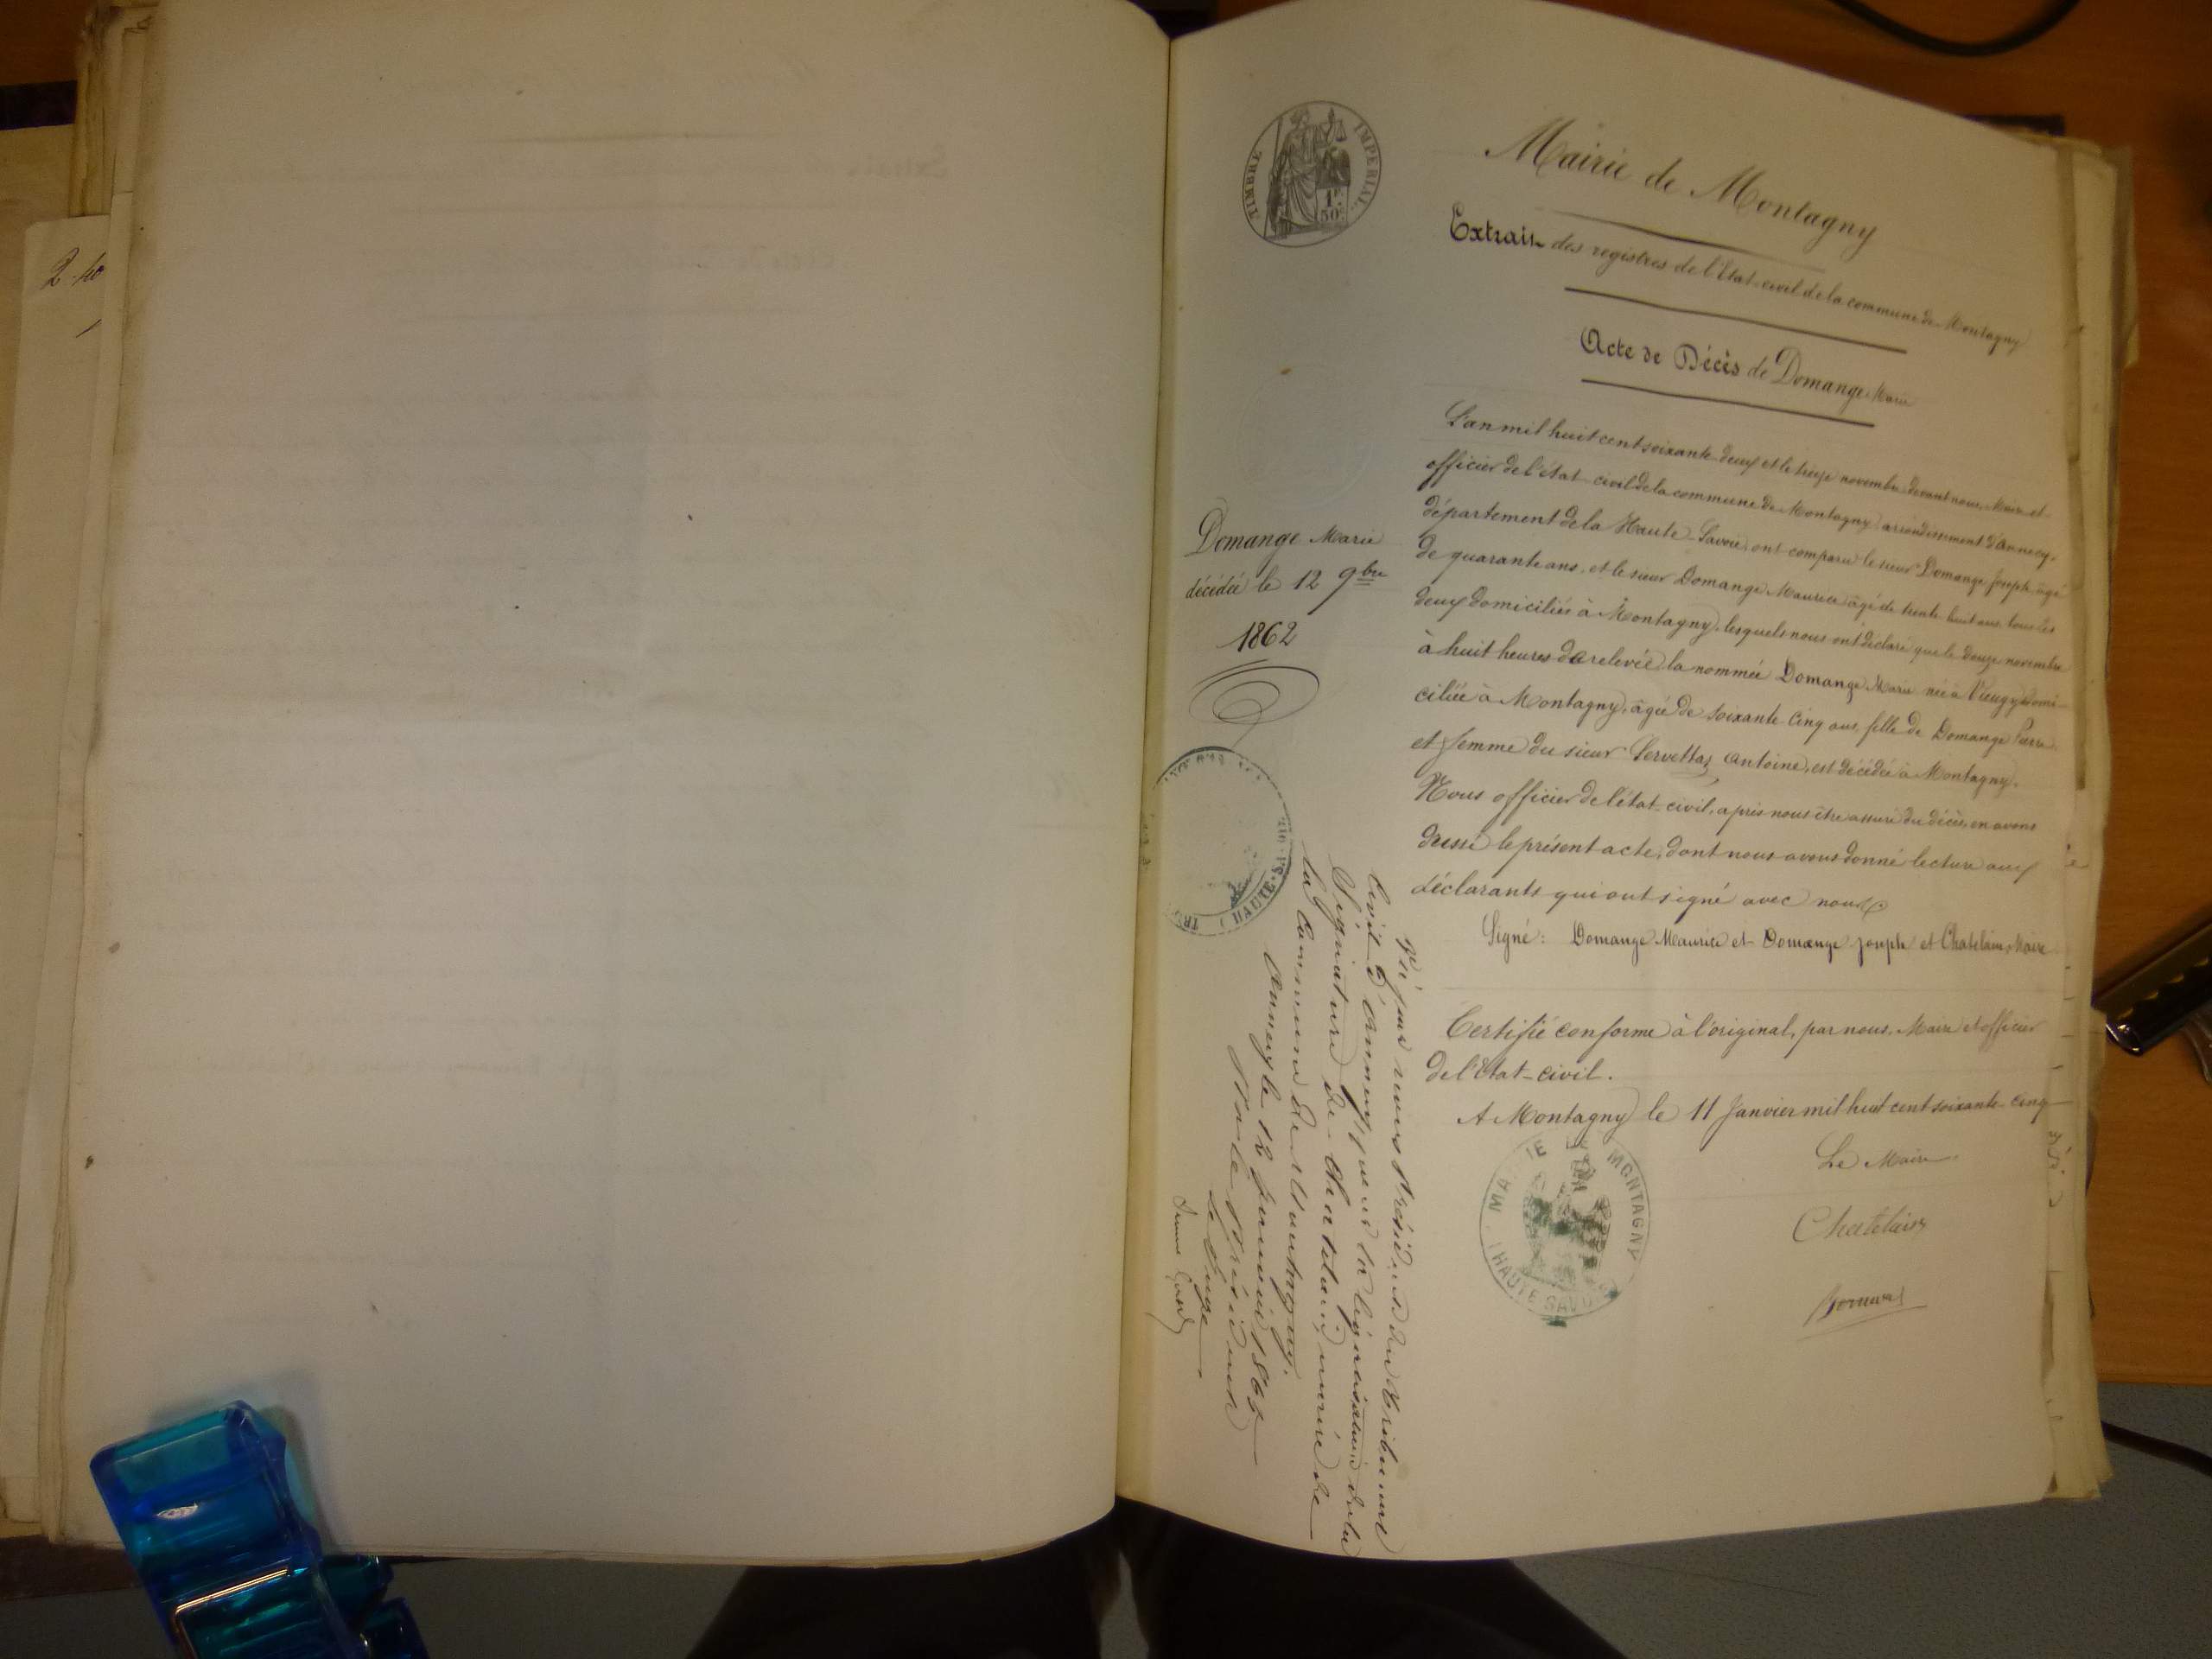 2-40
TIMBRE IMPERIAL
1F 50C
Mairie de Montagny
Extrait des registres de l'Etat-civil de la commune de Montagny
Acte de Décès de Domange Marie
Domange Marie
décédée le 12 9bre
1862
L'an mil huit cent soixante-deux et le treize novembre devant nous, Maire et
officier de l'état-civil de la commune de Montagny arrondissement d'Annecy,
département de la Haute-Savoie, ont comparu le sieur Domange Joseph, âgé
de quarante ans, et le sieur Domange Maurice âgé de trente huit ans, tous les
deux domiciliés à Montagny, lesquels nous ont déclaré que le douze novembre
à huit heures de relevée, la nommée Domange Marie née à Vieugy domi-
ciliée à Montagny, âgée de soixante cinq ans, fille de Domange Pierre
et femme du sieur Servettaz Antoine, est décédée à Montagny.
Nous officier de l'état-civil, après nous être assuré du décès, en avons
dressé le présent acte, dont nous avons donné lecture aux
déclarants qui ont signé avec nous
Signé: Domange Maurice et Domange Joseph et Chatelain, Maire
Certifié conforme à l'original, par nous, Maire et officier
de l'Etat-civil.
A Montagny le 11 Janvier mil huit cent soixante-cinq
Le Maire
Chatelain
MAIRIE DE MONTAGNY
(HAUTE SAVOIE)
(HAUTE-SAVOIE
Vu par nous Président du Tribunal
Civil d'Annecy pour la légalisation de la
Signature de Chatelain, maire de
la Commune de Montagny.
Annecy le 12 janvier 1865
Pr le Président
Le Juge